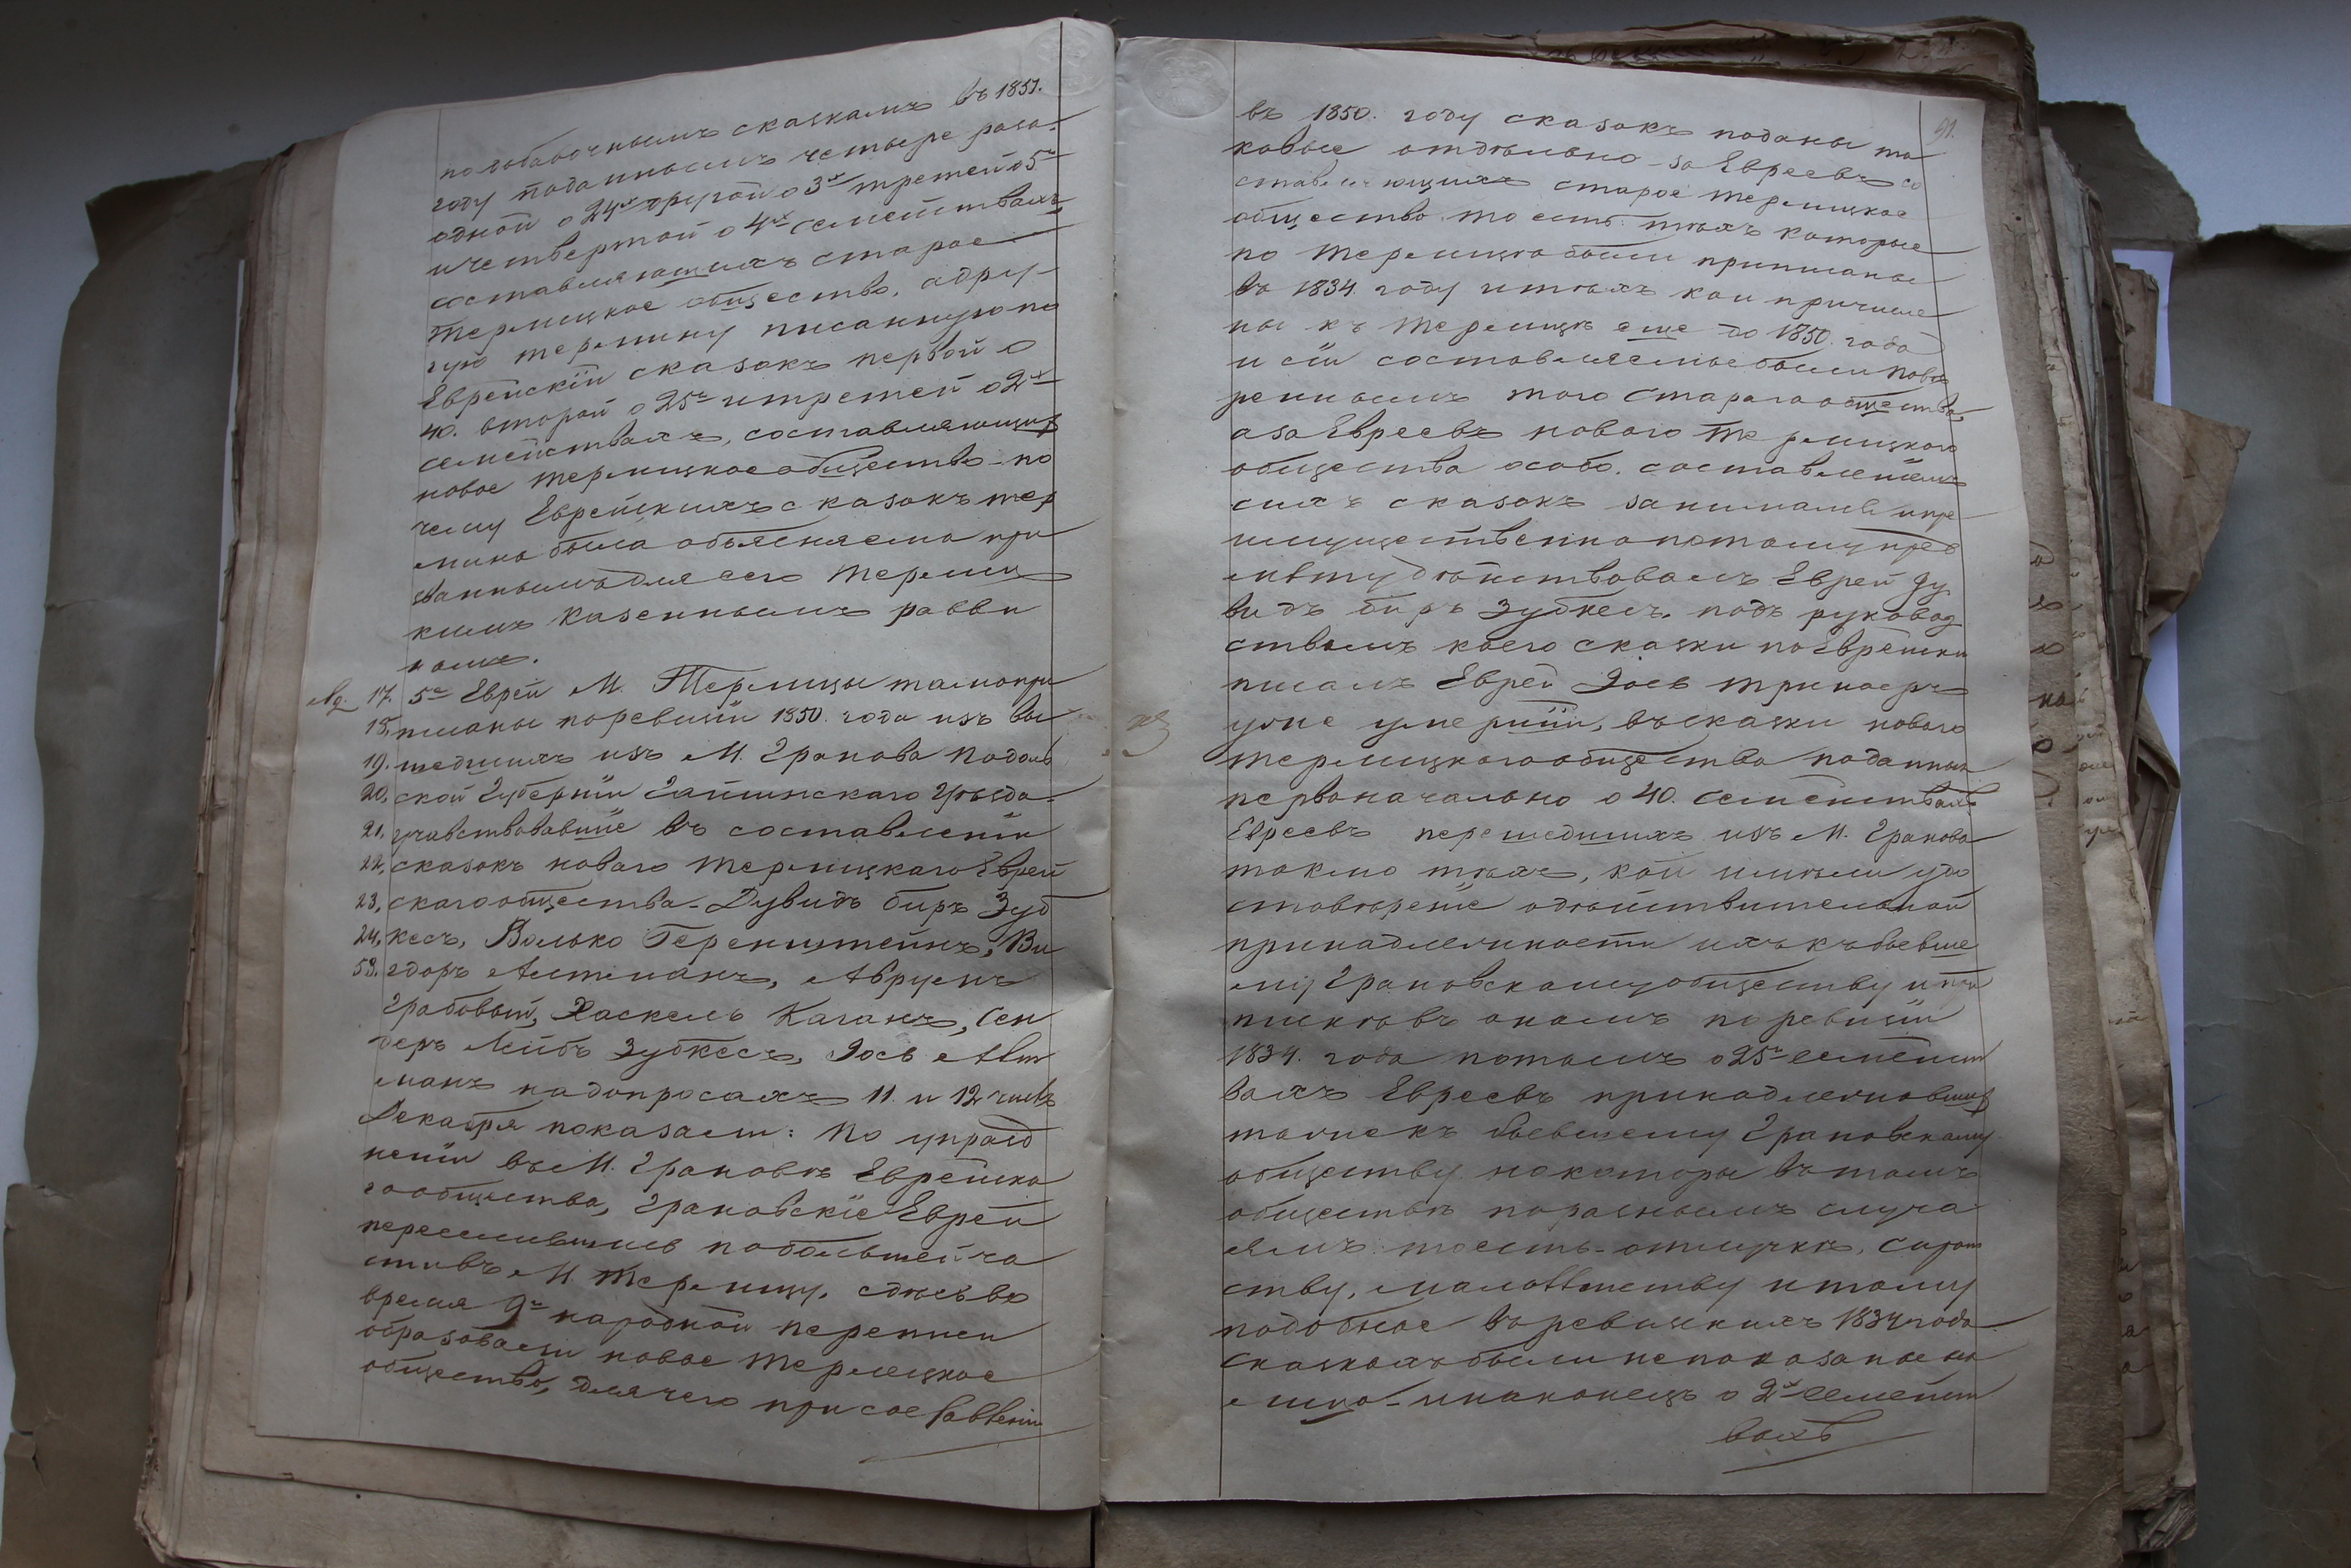 по добавочнымъ сказкамъ въ 1851.
году поданнымъ четыре раза.
одной о 24х другой о 3х третей о 5ти
и четвертой о 4х семействахъ
составляющихъ старое
Терлицкое общество, а дру-
гую терлицу писанную по
Еврейскiи сказокъ первой о
40. второй о 25ти и третей о 2х
семействахъ, составляющихъ
новое Терлицкое общество по
чему Еврейскихъ сказокъ тер
мина была объясняема при
званнымъ для сего Терлиц
кимъ казеннымъ равви
номъ.
17. 5е Евреи М. Терлицы тамо при
18. писаны по ревизiи 1850. года изъ вы
19. шедшихъ изъ М. Гранова Подоль
20. ской Губернiи Гайсинскаго Уѣзда-
21. учавствовавшiе въ составленiи
22. сказокъ новаго Терлицкаго Еврей
23. скаго общества- Дувидъ биръ Зуб
24. кесъ, Волько Геренштейнъ, Ви
58. гдоръ Альтманъ, Аврумъ
Грабовый, Хаскель Каганъ, Сен
деръ Лейбъ Зубкесъ, Iось Альт
манъ на допросахъ 11. и 12 числъ
Декабря показали: По упразд
ненiи въ М. Грановѣ Еврейска
го общества, Грановскiе Евреи
переселившись по большей ча
сти въ М. Терлицу, сдѣсь во
время 9й народной переписи
образовали новое Терлецкое
общество, для чего при составленiи
91.
въ 1850. году сказокъ поданы та
ковые отдѣльно - за Евреевъ со
ставляющихъ старое Терлицкое
общество. то есть: тѣхъ которые
по Терлицѣ были приписаны
въ 1834. году и тѣхъ кои причисле
ны къ Терлицѣ еще до 1850. года
и сiи составляемые были повѣ
реннымъ того стараго общества,
а за Евреевъ новаго Терлицкаго
общества особо. составленiемъ
сихъ сказокъ занимались и пре
имущественно по тому пред
мѣту дѣйствовалъ Еврей Ду
видъ биръ Зубкесъ. подъ руковод
ствомъ коего сказки по Еврейски
писалъ Еврей Iось
уже умершiй, въ сказки новаго
Терлицкаго общества поданныя
первоначально о 40. семействахъ
Евреевъ перешедшихъ изъ М. Гранова
токмо тѣхъ, кои имѣли удо
стовѣренiе о дѣйствительной
принадлежности ихъ къ бывше
му Грановскому обществу и при
пискѣ въ ономъ по ревизiи
1834. года потомъ о 25ти семейст
вахъ Евреевъ принадлежавшихъ
также къ бывшему Грановскому
обществу но которы въ томъ
обществѣ по разнымъ случа
ямъ: то есть - отлучкѣ, сирот
ству, малолѣтству и тому
подобное въ ревизкихъ 1834 года
сказкахъ были не показаные на
лицо - и наконецъ о 2х семейст
вахъ